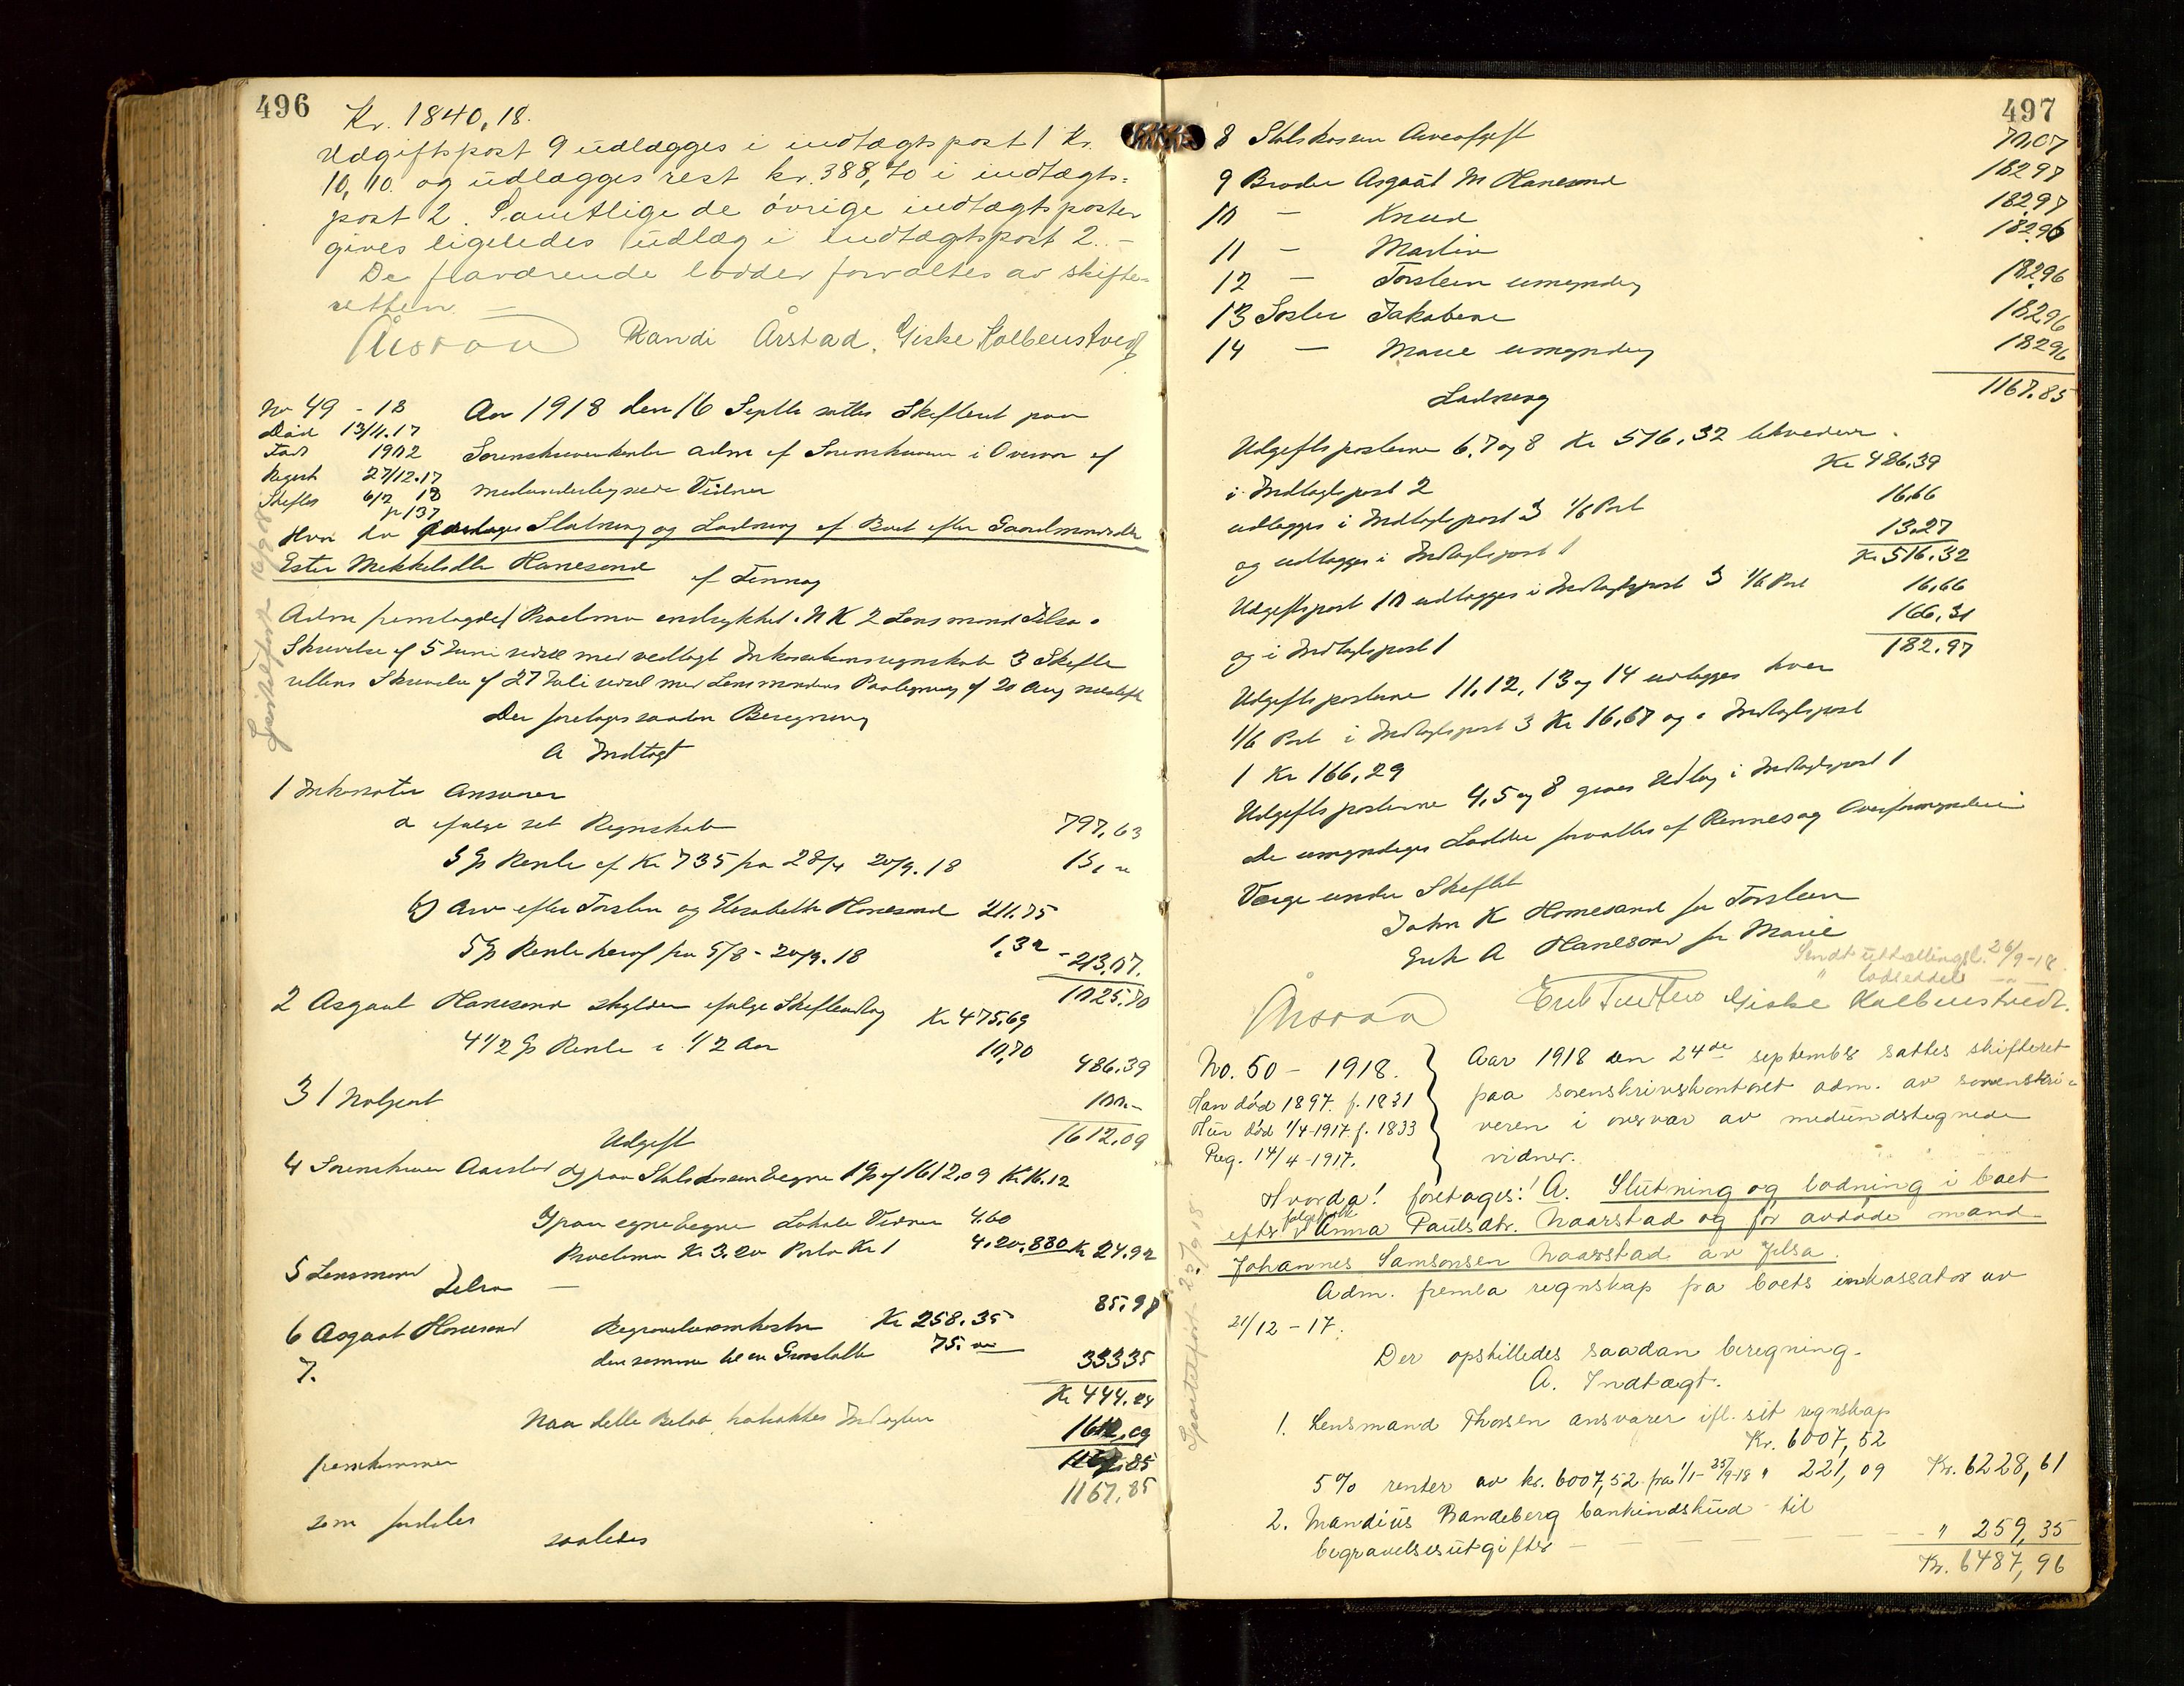 496
Kr. 1840,18.
Udgiftspost 9 udlægges i indtægtspost 1 Kr.
10,10. og udlægges rest kr. 388,70 i indtægts-
post 2. Samtlige de øvrige indtægtsposter
gives ligeledes udlæg i indtægtspost 2. –
De fraværende lodder forvaltes av skifte-
retten. –
Randi Årstad. Giske Kolbenstvedt
No 49 - 18
Død 13/11.17
Fød 1902
Regist 27/12.17
Skiftes 6/2 18
p 137
Aar 1918 den 16 Septbr sattes Skifteret paa
Sorenskriverkontoret adm af Sorenskriveren i Overvær af
medunderskrevne Vidner
Hvor da foretages Slutning og Lodning af Boet efter Gaardmandsdatter
Ester Mikkelsdtr Hanesand af Finnøy
Adm fremlagde Proclama indrykket i NK 2 Lensmand Jelsa
Skrivelse af 5 Juni med vedlagt Inkassationsregnskab 3 Skifte
rettens Skrivelse af 27 Juli med Lensmandens Paategning af 20 Aug
Der foretages saadan Beregning
A Indtægt
1 Inkassator Ansvarer
a ifølge sit Regnskab 797,63
5 % Rente af Kr 735 fra 28/4 20/9.18 15,
b) Arv efter Torsten og Elisabeth Hanesand 211.75
5 % Rente heraf fra 5/8 - 20/9.18 1,32 - 213.07.
1025,70
2 Asgaut Hanesand skylder ifølge Skifteudlæg Kr 475,69
4 1/2 % Rente i 1/2 Aar 10,70
486.39
3 1 100.-
1612,09
Udgift
4 Sorenskriver Aarstad a) paa Statskassens Vegne 1 % af 1612,09 Kr 16.12
paa egne Vegne Vidner 4.60
Proclama Kr 3.20 Porto Kr 1 4.20. 8.80 Kr 24.92
5 Lensmand Jelsa – 85.97
6 Asgaut Hanesand Begravelsesomkostn Kr 258.35
7. den samme til en Gravstøtte 75.
333.35
Kr 444.24
Naar dette Beløb fratrækkes Indtægten
1612,09
fremkommer 1167.85
1167,85
som fordeles
saaledes
Sportelført 16/9 18
497
8 Statskassen Arveafgift 70,07
9 Broder Asgaut M Hanesand 182.97
10 – Knud 182.97
11 – Martin 182.96
12 – Torsten umyndig 182.96
13 Søster Jakobine 182.96
14 – Marie umyndig 182.96
1167.85
Lodning
Udgiftsposterne 6.7 og 8 Kr 516.32 likvideres
i Indtægtspost 2 Kr 486,39
udlægges i Indtægtspost 3 1/6 Part 16,66
og udlægges i Indtægtspost 1 13,27
Kr 516.32
Udgiftspost 10 udlægges i Indtægtspost 3 1/6 Part 16,66
og i Indtægtspost 1 166,31
182.97
Udgiftsposterne 11, 12, 13 og 14 udlægges hver
1/6 Part i Indtægtspost 3 Kr 16,67 og i Indtægtspost
1 Kr 166,29
Udgiftsposterne 4, 5 og 8 gives Udlæg i Indtægtspost 1
De umyndiges Lodder forvaltes af Rennesøy Overformynderi
Værge under Skiftet
John K Hanesand for Torsten
Erik A Hanesand for Marie
Sendt utstællingsl. 26/9-18.
" lodseddel
Giske Kolbenstvedt.
No. 50 – 1918.
Han død 1897. f. 1831
Hun død 1/4-1917. f. 1833
Reg. 14/4-1917.
Aar 1918 den 24de september sattes skifteret
paa sorenskriverkontoret adm. av sorenskri-
veren i overvær av medundertegnede
vidner.
Hvorda! foretages: A. Slutning og lodning i boet
efter Anna Paulsdtr. Naarstad og før avdøde mand
Johannes Samsonsen Naarstad av Jelsa.
Adm. fremla regnskap fra boets inkassator av
21/12 – 17.
Der opstilledes saadan beregning.
A. Indtægt.
1. Lensmand Thorsen ansvarer ifl. sit regnskap
Kr. 6007,52
5% renter av kr. 6007,52 fra 1/1-25/9-18 " 221,09 Kr. 6228,61
2. Mandius Randeberg bankindskud til
begravelsesutgifter – – – – " 259,35
Kr. 6487,96
Sportelført 25/9 18